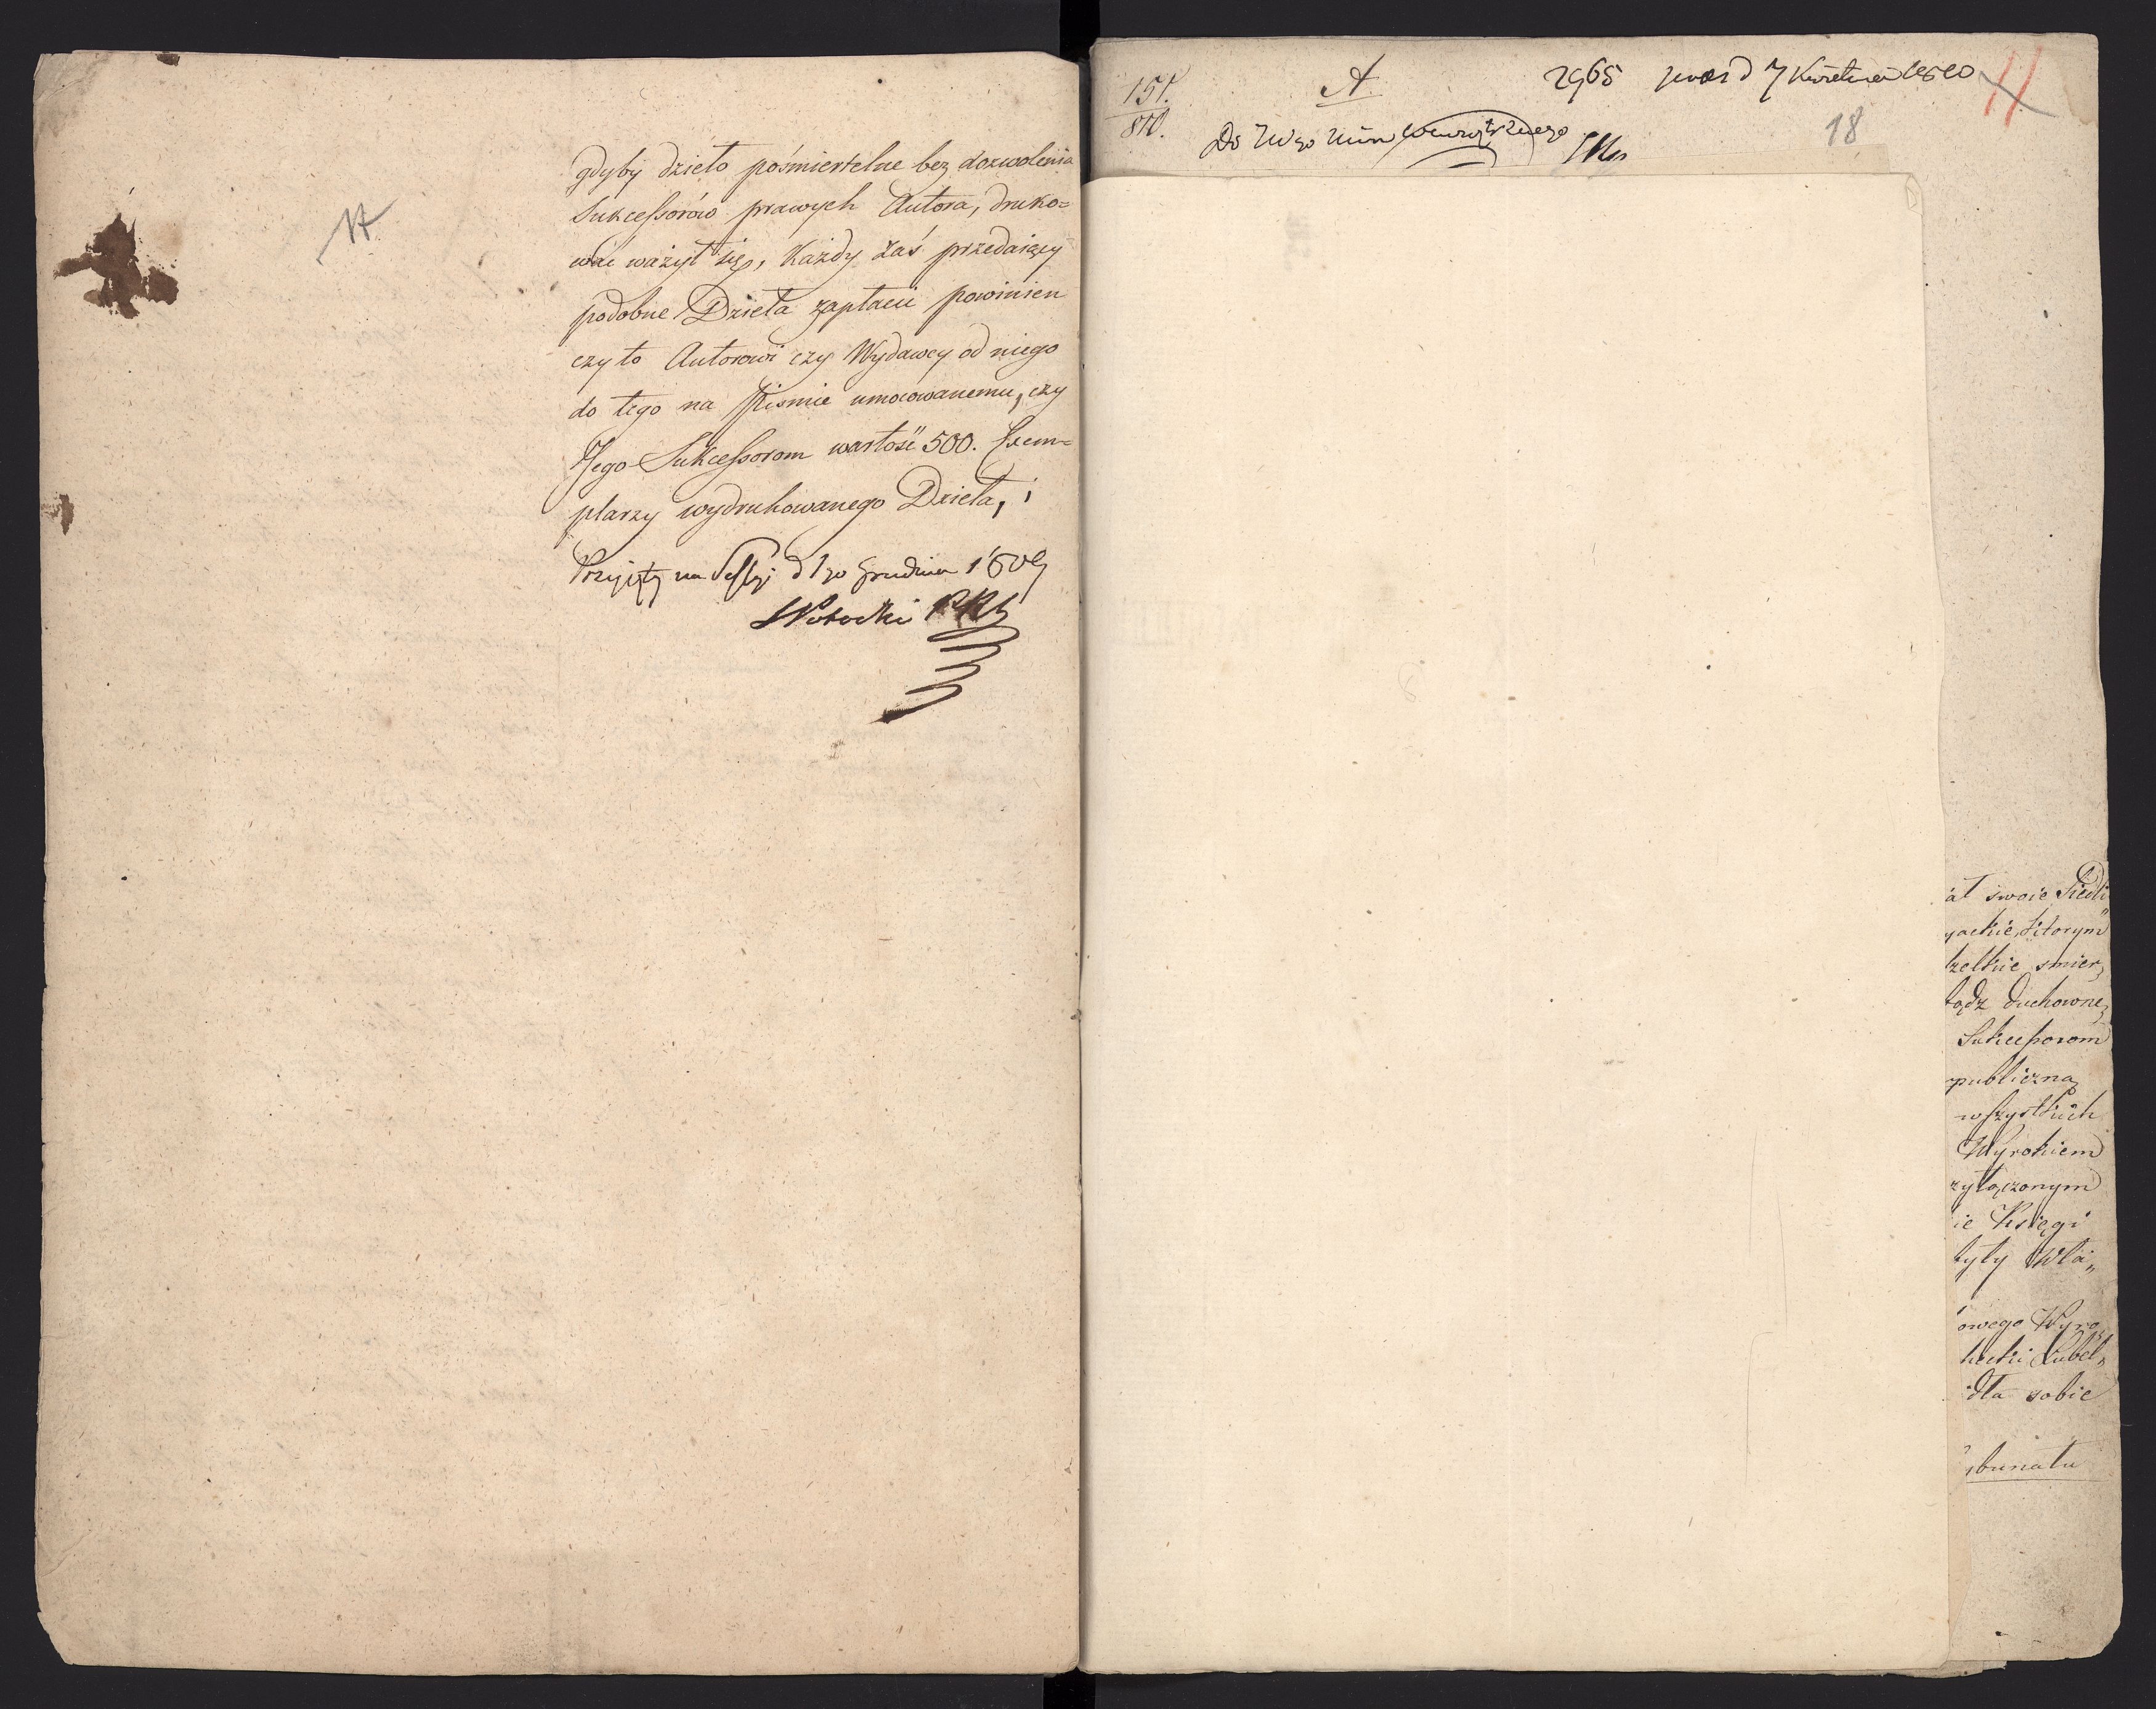 17
gdyby dzieło pośmiertelne bez dozwolenia
Sukcessorów prawych Autora, druko=
wać ważył się, Każdy zaś przedaiący
podobne Dzieła zapłacić powinien
czy to Autorowi czy Wydawcy od niego
do tego na Piśmie umocowanemu, czy
Jego Sukcessorom wartość 500. Exem=
plarzy wydrukowanego Dzieła, i
Przyięty na Sessyi d 1go Grudnia 1809
SPotocki
151.
810.
A
2965 d 7 Kwietnia 1810
11
18
Do JWgo Min Wewnętrznego
ał swoie Siedli
yackie, którym
zelkie smier,
bądz duchowne,
Sukcessorom
publiczną
wszystkich
Wyrokiem
zyłączonym
ie Księgi
były Wła„
owego Wyro„
heeki Lubel„
dla sobie
ybunału